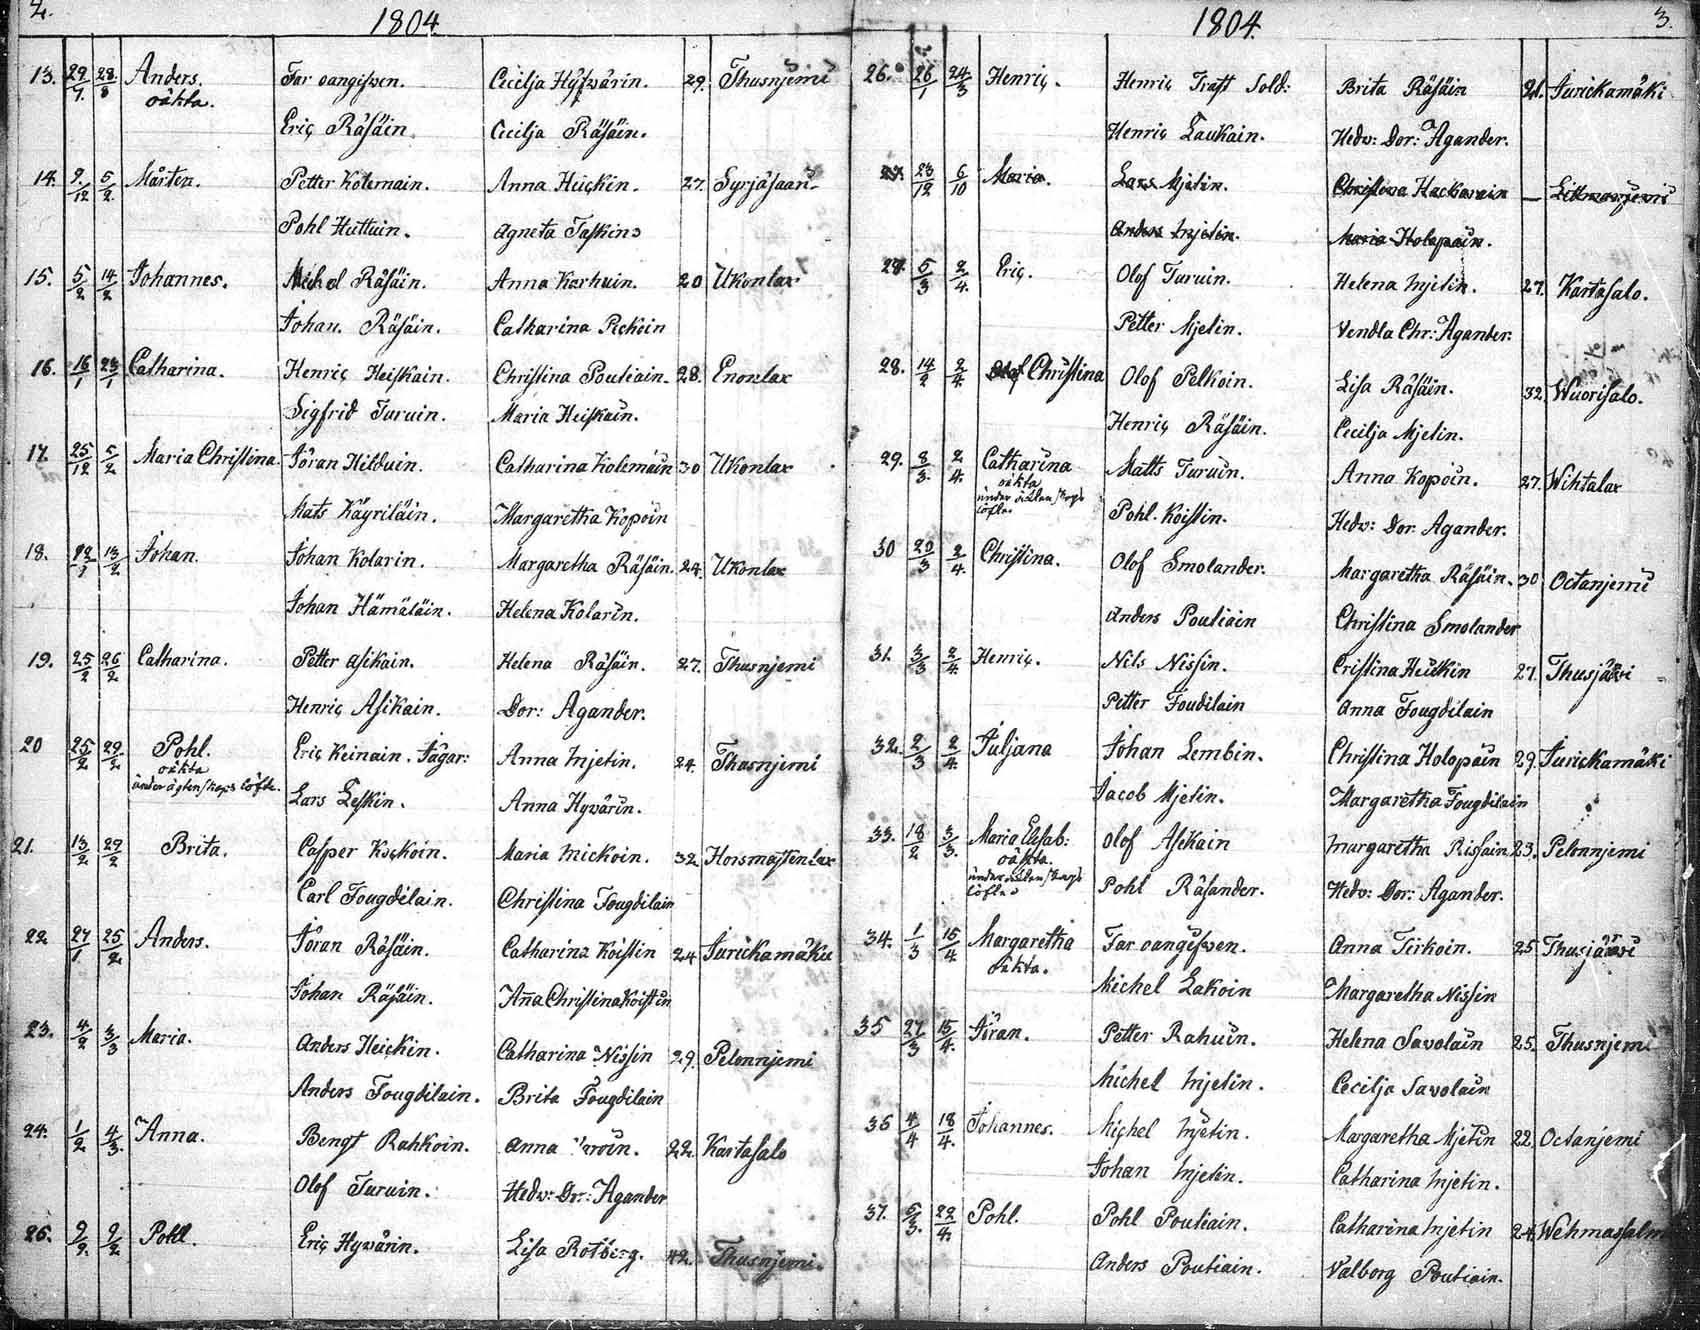 2.
1804.
13. 29/1. 28./8 Anders. Far oangifven. Cecilja Hyfvärin. 29. Thusnjemi
oäkta.
Eriç Räsäin. Cecilja Räsäin.
14. 9./12 5/2. Mårten. Petter Kolemain. Anna Heiçkin. 27. Syrjäsaari
Pohl Huttuin. Agneta Taskin
15. 5/2 14/2 Johannes. Michel Räsäin. Anna Karhuin. 20 Ukonlax
Johan. Räsäin. Catharina Pickoin
16. 16/1 23/1 Catharina. Henriç Heiskain. Christina Poutiain. 28. Enonlax
Sigfrid Turuin. Maria Heiskain.
17. 25/12 5/2 Maria Christina. Jöran Hilduin. Catharina Kolemain 30 Ukonlax
Mats Käyriläin. Margaretha Kopoin
18. 13/2 Johan. Johan Kolarin. Margaretha Räsäin. 24. Ukonlax
Johan Hämäläin. Helena Kolarin.
19. 25/2 26/2 Catharina. Petter Asikain. Helena Räsäin. 27. Thusnjemi
Henriç Asikain. Dor: Agander.
20 25/2 29./2 Pohl. Eriç Keinain. Jägar: Anna Mjetin. 24. Thusnjemi
oäkta
under ägtenskaps löfte.
Lars Leskin. Anna Hyvärin.
21. 13/2 29/2 Brita. Casper Kockoin. Maria Mickoin. 32. Horsmastenlax
Carl Fougdilain. Christina Fougdilain
22 27/1 25/2 Anders. Jöran Räsäin. Catharina Koistin 24 Jurickamäki
Johan Räsäin. Anna Christina Koistin
23. 4/2 3/3 Maria. Anders Heiçkin. Catharina Nissin 29. Pelonnjemi
Anders Fougdilain. Brita Fougdilain
24. 1/2 4/3. Anna. Bengt Rahkoin. Anna 22. Kartasalo
Olof Turuin. Hedv: Dor: Agander
25. 9/2. 9/2 Pohl. Eriç Hyvärin. Lisa Rotberg. 42. Thusnjemi.
1804.
3.
26. 26/1 24/3 Henriç. Henriç Traft Sold: Brita Räsäin 21. Jurickamäki
Henriç Laukain. Hedv: Dor: Agander.
27. 23/12 6/10 Maria. Lars Mjetin. Christina Hackarain —
Anders Mjetin. Maria Holopain.
27. 5/3 2/4. Eriç. Olof Turuin. Helena Mjetin. 27. Kartasalo.
Petter Mjetin. Vendla Chr: Agander.
28. 14/2 2/4 Olof Christina Olof Pelkoin. Lisa Räsäin. 32. Wuorisalo.
Henriç Räsäin. Cecilja Mjetin.
29. 8/3. 2/4. Catharina Matts Turuin. Anna Kopoin. 27. Wihtalax
oäkta
under äcktenskaps
löfte.
Pohl. Koistin. Hedv: Dor: Agander.
30 20/3 2/4. Christina. Olof Smolander. Margaretha Räsäin. 30 Octanjemi
Anders Poutiain Christina Smolander
31. 3/3 2/4. Henriç. Nils Nissin. Cristina Heickin 27. Thusjärvi
Petter Foudilain Anna Fougdilain
32. 2/3 2/4. Juljana Johan Lembin. Christina Holopain 29. Jurickamäki
Jacob Mjetin. Margaretha Fougdilain
33. 18/2 3/3. Maria Elisab: Olof Asikain Margaretha Rissain 23. Pelonnjemi
oäkta.
under äcktenskaps
löfte
Pohl Räsander. Hedv: Dor: Agander.
34. 1/3 15/4 Margaretha Far oangifven. Anna Tirkoin. 25 Thusjärvi
oäkta.
Michel Lakoin Margaretha Nissin
35 27/3 15/4. Jöran. Petter Rahuin. Helena Savolain 25. Thusnjemi
Michel Mjetin. Cecilja Savolain
36 4/4 18/4. Johannes. Michel Mjetin. Margaretha Mjetin 22. Octanjemi
Johan Mjetin. Catharina Mjetin.
37. 5/3. 22/4. Pohl. Pohl Poutiain. Catharina Mjetin 24. Wehmassalmi
Anders Poutiain. Valborg Poutiain.